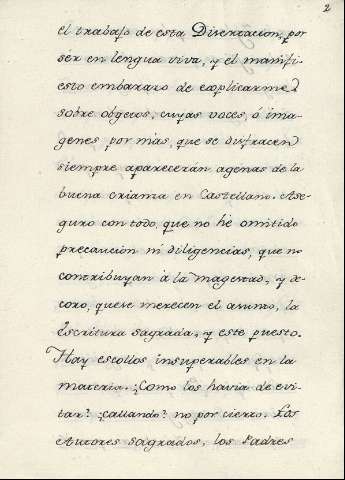 2
el trabajo de esta Disertacion, por
sér en lengua viva, y el manifi-
esto embarazo de explicarme
sobre obgetos, cuyas voces, ó ima-
genes por mas, que se disfracen
siempre aparecerán agenas de la
buena crianza en Castellano. Ase-
guro con todo, que no hé omitido
precaucion ni diligencias, que no
contribuyan à la magestad, y de-
coro, que se merecen el asunto, la
Escritura Sagrada, y este puesto.
Hay escollos insuperables en la
materia. ¿Como los havia de evi-
tar? ¿callando? no por cierto. Los
Autores sagrados, los Padres